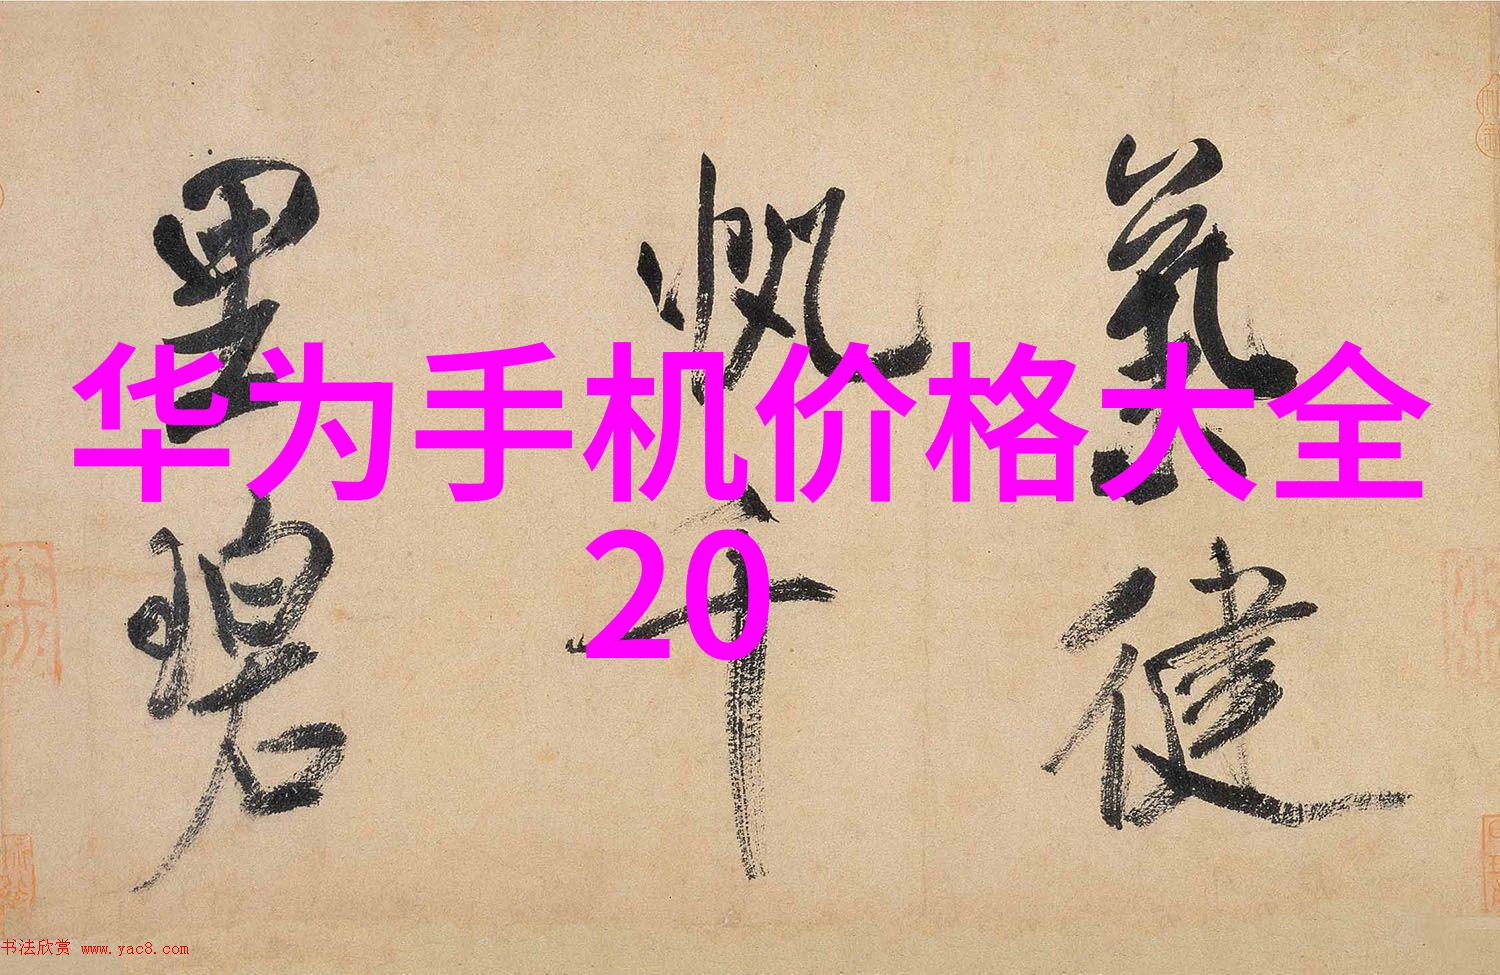 华为手机价格大全
20
氣健
帆千
里碧
书法欣赏 www.yac8.com